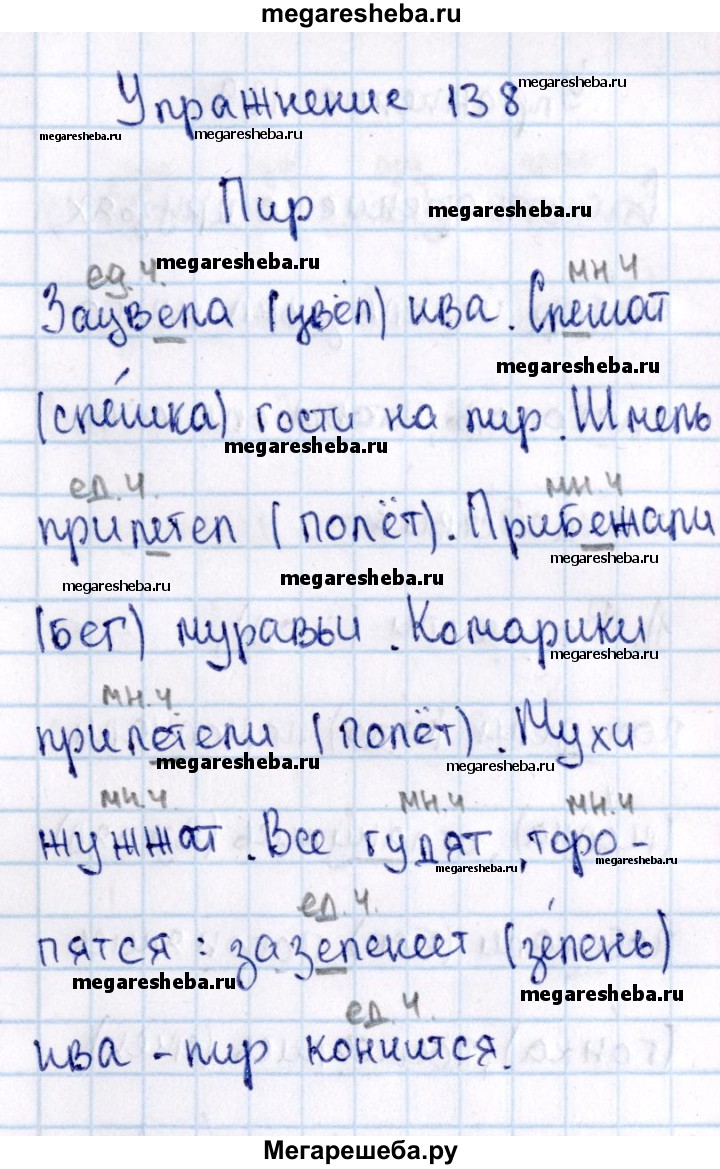 megaresheba.ru
Упражнение 138
megaresheba.ru
megaresheba.ru megaresheba.ru
Пир
megaresheba.ru
megaresheba.ru
ед.ч. мн.ч
Зацвела (цвёл) ива. Спешат
megaresheba.ru
(спе́шка) гости на пир. Шмель
megaresheba.ru
ед.ч. мн.ч
прилетел (полёт). Прибежали
megaresheba.ru megaresheba.ru megaresheba.ru
(бег) муравьи. Комарики
megaresheba.ru
мн.ч
прилетели (полёт). Мухи
megaresheba.ru megaresheba.ru
мн.ч мн.ч мн.ч
жужжат. Все гудят, торо-
megaresheba.ru megaresheba.ru
ед.ч.
пятся: зазеленеет (зе́лень)
megaresheba.ru megaresheba.ru
ед.ч.
ива - пир кончится.
Мегарешеба.ру